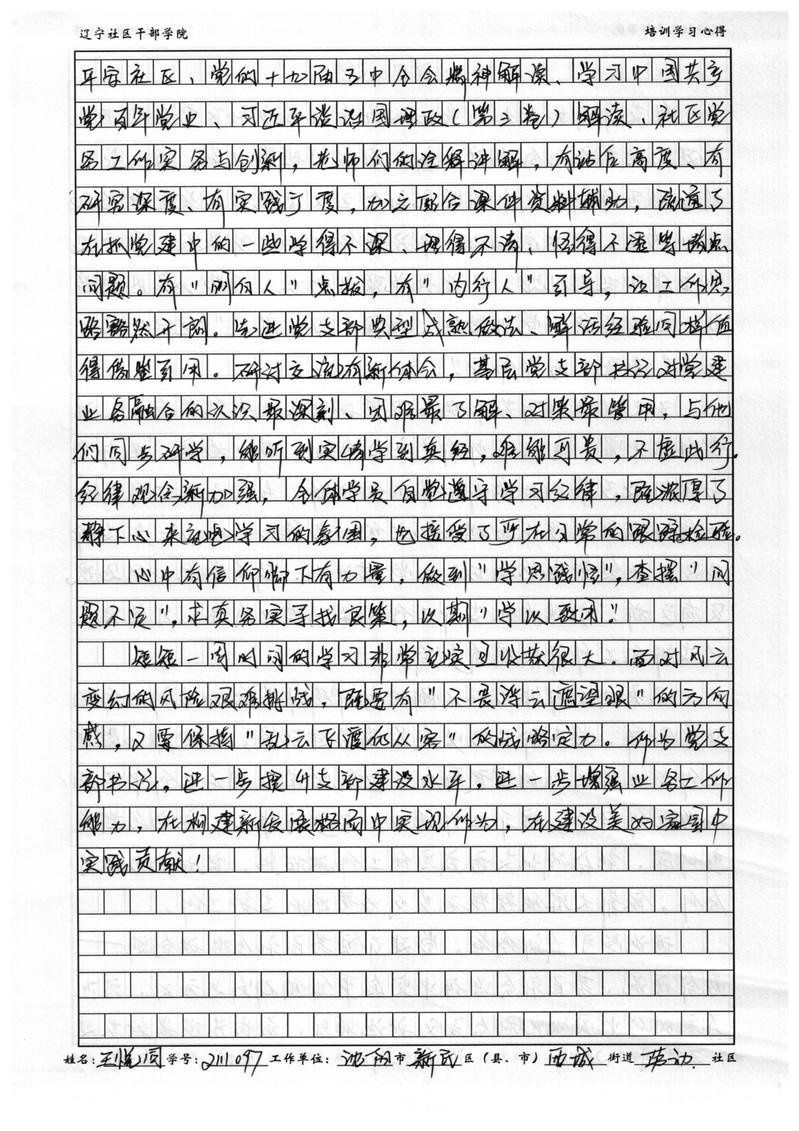 辽宁社区干部学院 培训学习心得
平安社区、党的十九届五中全会精神解读、学习中国共产
党百年党史、习近平谈治国理政(第三卷)解读、社区党
务工作实务与创新,老师们的诠释讲解,有站位高度、有
研究深度、有实践广度,加之配合课件资料辅助,疏通了
在抓党建中的一些学得不深、研得不清、悟得不透等堵点
问题。有"明白人"点拨,有"内行人"引导,让工作思
路豁然开朗。先进党支部典型成熟做法、鲜活经验同样值
得借鉴可用。研讨交流有新体会,基层党支部书记对党建
业务融合的认识最深刻、困难最了解、对策最管用,与他
们同步研学,能听到实情学到真经,难能可贵,不虚此行。
纪律观念新加强,全体学员自觉遵守学习纪律,既浓厚了
静下心来学习的氛围,也接受了严在日常的跟踪检验。
心中有信仰脚下有力量,做到"学思践悟",查摆"问
题不足",求真务实寻找良策,以期"学以致用"!
短短一周时间的学习非常充实且收获很大。面对风云
变幻的风险艰难挑战,既要有"不畏浮云遮望眼"的方向
感,又要保持"乱云飞渡仍从容"的战略定力。作为党支
部书记,进一步提升支部建设水平,进一步增强业务工作
能力,在构建新发展格局中实现作为,在建设美好家园中
实践贡献!
姓名:王悦同 学号:2111097 工作单位:沈阳市 新民区(县、市)西城 街道 社区